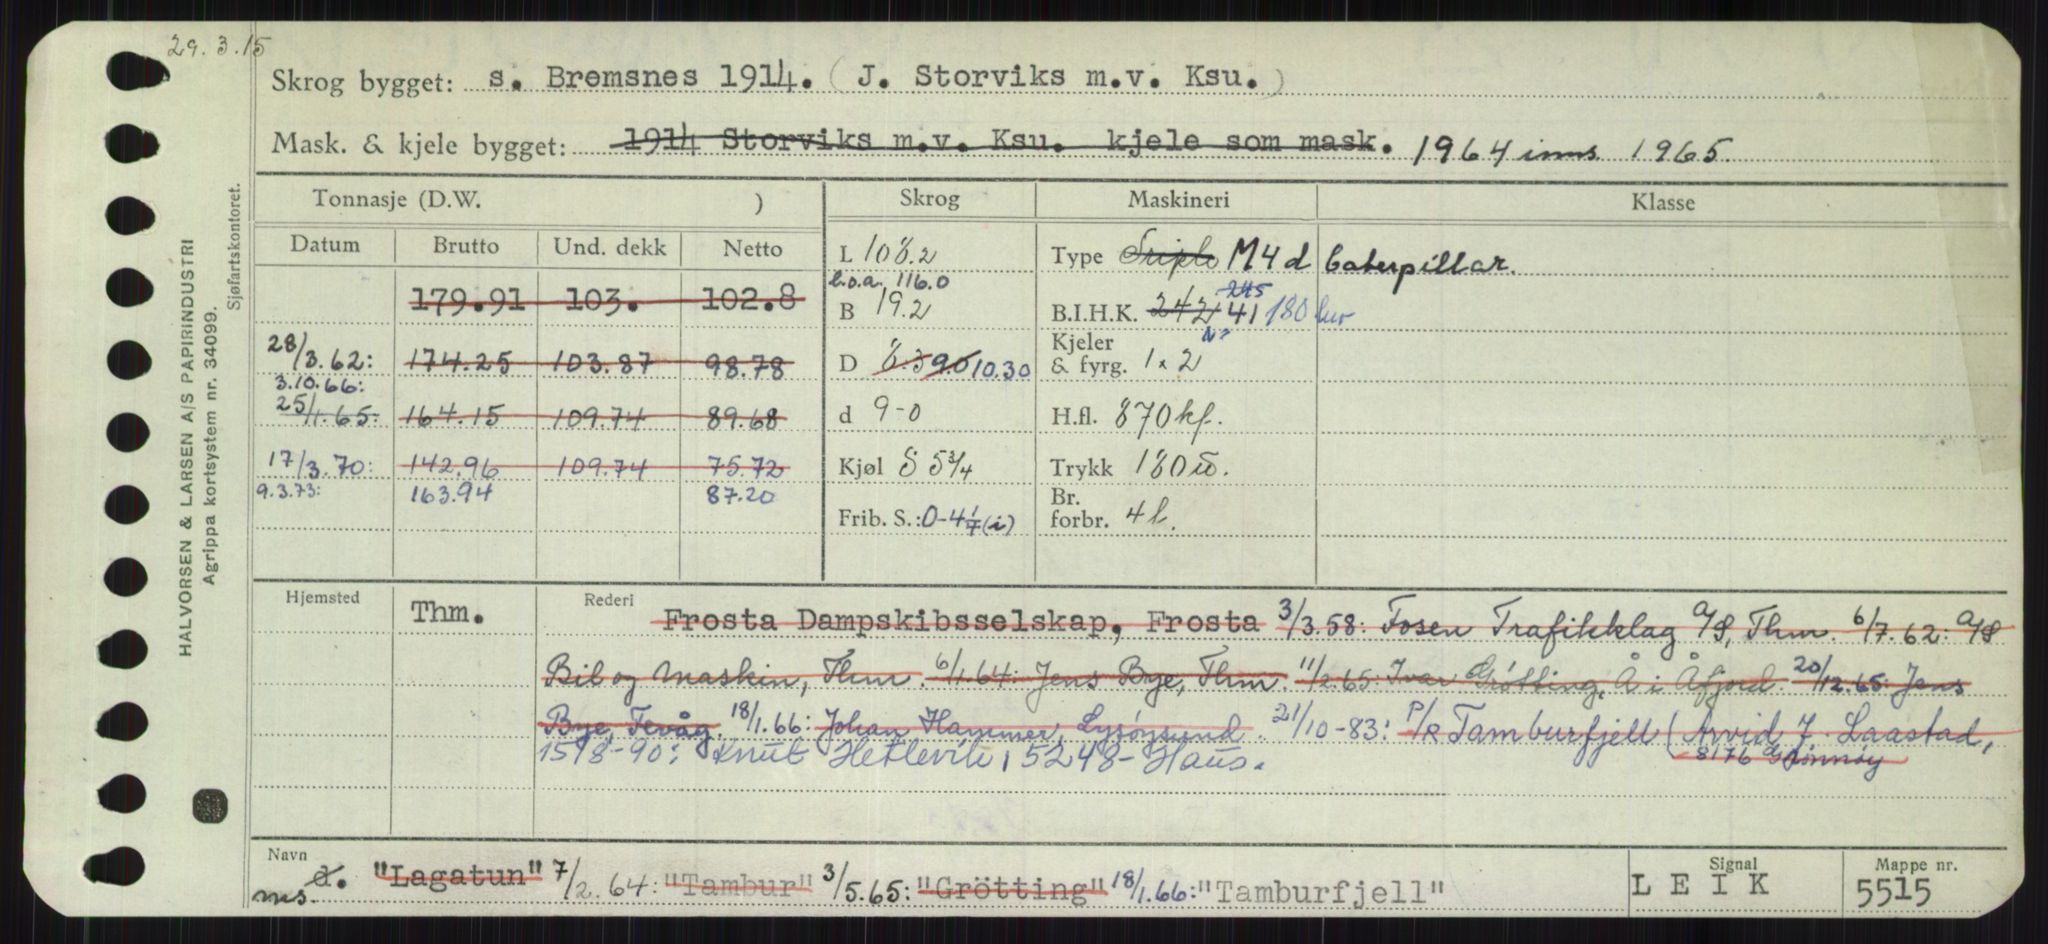 29.3.15
Skrog bygget: s. Bremsnes 1914. (J. Storviks m.v. Ksu.)
Mask. & kjele bygget: 1914 Storviks m.v. Ksu. kjele som mask. 1964 inns. 1965.
HALVORSEN & LARSEN A/S PAPIRINDUSTRI
Agrippa kortsystem nr. 34099.
Sjøfartskontoret.
Tonnasje (D.W. ) Skrog Maskineri Klasse
Datum Brutto Und. dekk Netto
179.91 103. 102.8
28/3.62: 174.25 103.87 98.78
3.10.66:
25/1.65: 164.15 109.74 89.68
17/3.70: 142.96 109.74 75.72
9.3.73: 163.94 87.20
L 108.2
l.o.a. 116.0
B 19.2
D 8.3 9.0 10.30
d 9-0
Kjøl S 5 3/4
Frib. S.: 0-4 1/7 (i)
Type Triple M4d Caterpillar.
B.I.H.K. 242 245 41 180
Kjeler & fyrg. 1 x 2
H.fl. 870 kf.
Trykk 180
Br. forbr. 4 l.
Hjemsted Thm. Rederi Frosta Dampskibsselskap, Frosta 3/3.58: Fosen Trafikklag A/S, Thm. 6/7.62: A/S
Bil og Maskin, Thm. 6/1.64: Jens Bye, Thm. 11/2.65: Ivar Grötting, Å i Åfjord. 20/12.65: Jens
Bye, Tevåg. 18/1.66: Johan Hammer, Lysøysund. 21/10-83: P/R Tamburfjell (Arvid J. Laastad,
8176 Bønnøy
15/8-90: Knut Hetlevik, 5248-Haus.
Navn
ms d. "Lagatun" 7/2.64: "Tambur" 3/5.65: "Grötting" 18/1.66: "Tamburfjell"
Signal
LEIK
Mappe nr.
5515